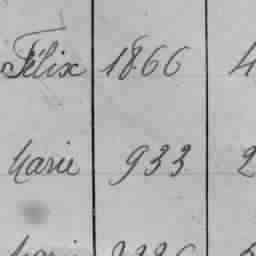 Félix 1866 4
Marie 933 2